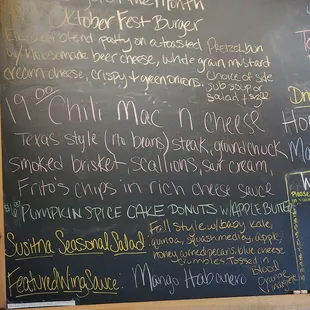 of the month
OktoberFest Burger
blend patty on a toasted Pretzel bun
w/ housemade beer cheese, whole grain mustard
cream cheese, crispy + green onions. Choice of side
sub soup or
salad +
19.00 Chili Mac n cheese
Texas style (no beans) steak, ground chuck
smoked brisket, scallions, sour cream
Frito's chips in rich cheese sauce
PUMPKIN SPICE CAKE DONUTS W/ APPLE BUTTER
Susitna Seasonal Salad: Fall style w/ baby kale,
quinoa, squash medley, apple,
honey turned pecans, blue cheese
crumbles. Tossed in
Blood
Orange
Featured Wing Sauce: Mango Habanero